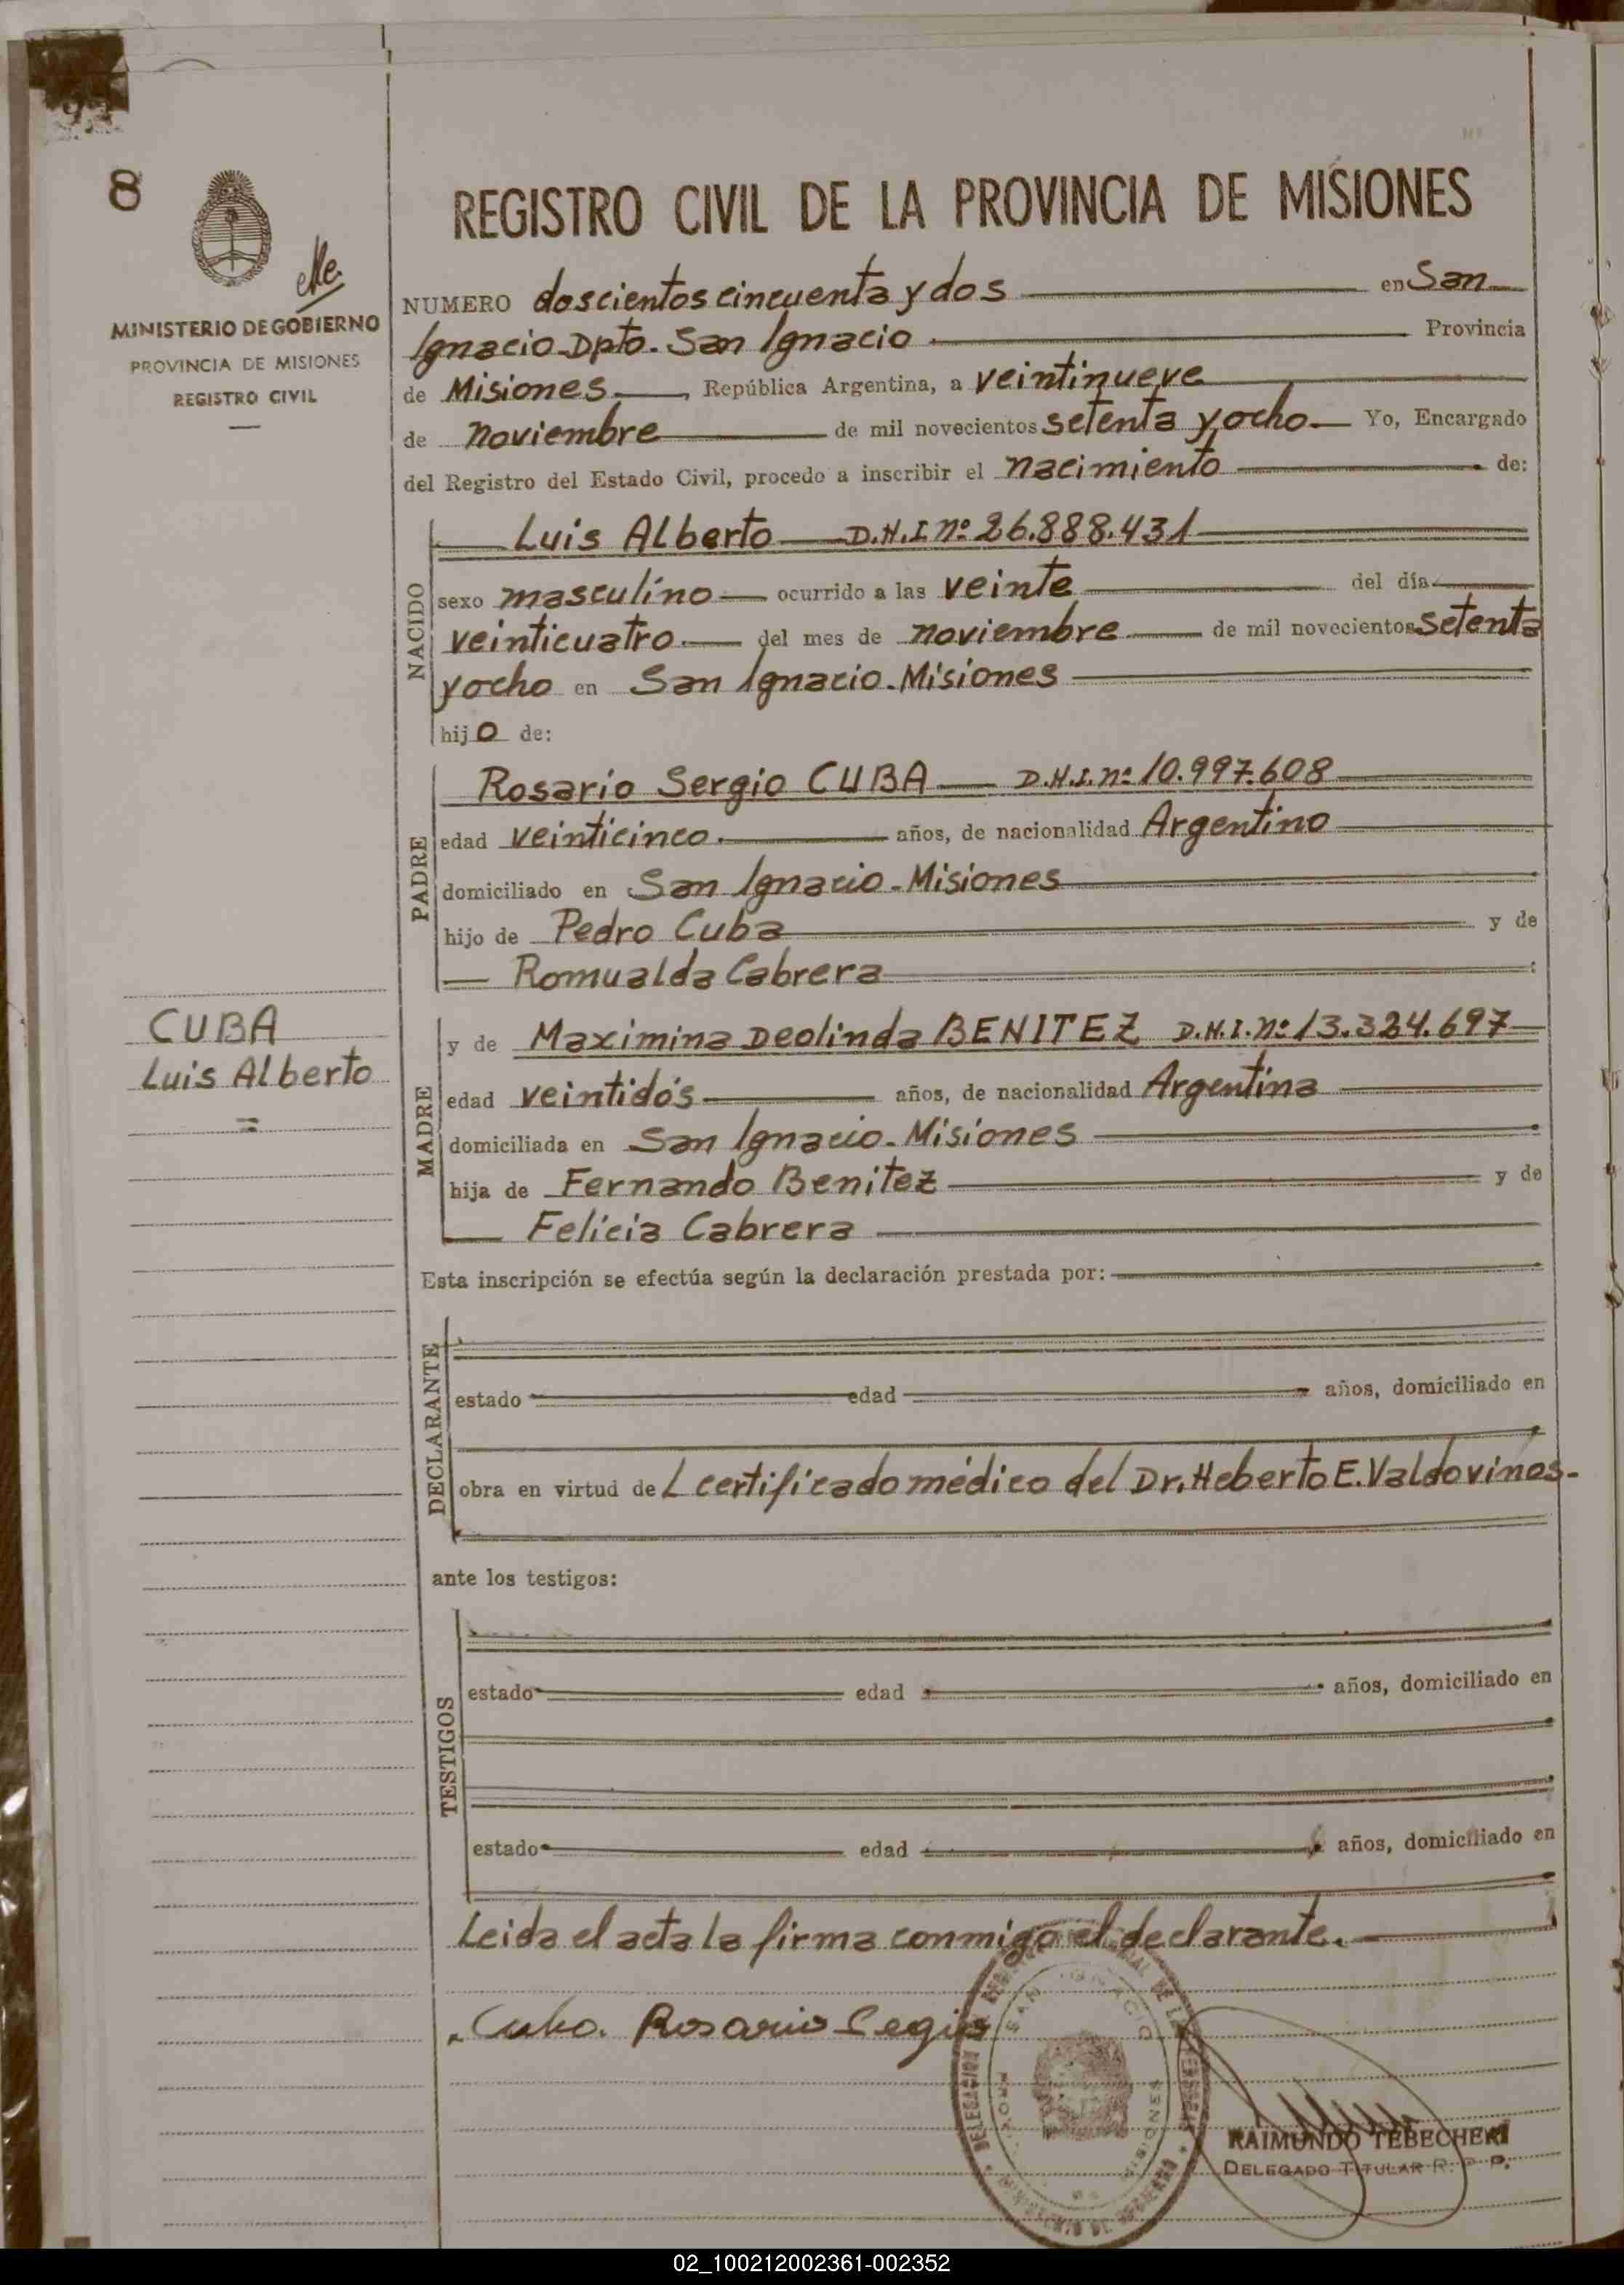 8
MINISTERIO DE GOBIERNO
PROVINCIA DE MISIONES
REGISTRO CIVIL
REGISTRO CIVIL DE LA PROVINCIA DE MISIONES
NUMERO doscientos cincuenta y dos en San
Ignacio Dpto. San Ignacio Provincia
de Misiones, República Argentina, a veintinueve
de noviembre de mil novecientos setenta y ocho. Yo, Encargado
del Registro del Estado Civil, procedo a inscribir el nacimiento de:
NACIDO
Luis Alberto D.N.I. nº 26.888.431
sexo masculino ocurrido a las veinte del día
veinticuatro del mes de noviembre de mil novecientos setenta
y ocho en San Ignacio. Misiones
hijo de:
PADRE
Rosario Sergio CUBA D.N.I. nº 10.997.608
edad veinticinco. años, de nacionalidad Argentino
domiciliado en San Ignacio. Misiones
hijo de Pedro Cuba y de
Romualda Cabrera
CUBA
Luis Alberto
=
MADRE
y de Maximina Deolinda BENITEZ D.N.I. nº 13.324.697
edad veintidós años, de nacionalidad Argentina
domiciliada en San Ignacio. Misiones
hija de Fernando Benitez y de
Felicia Cabrera
Esta inscripción se efectúa según la declaración prestada por:
DECLARANTE
estado edad años, domiciliado en
obra en virtud del certificado médico del Dr. Heberto E. Valdovinos.
ante los testigos:
TESTIGOS
estado edad años, domiciliado en
estado edad años, domiciliado en
Leida el acta la firma conmigo el declarante.
Cuba. Rosario Segio
SAN IGNACIO
MISIONES
RAIMUNDO TEBECHERI
DELEGADO TITULAR R. P. P.
02_100212002361-002352